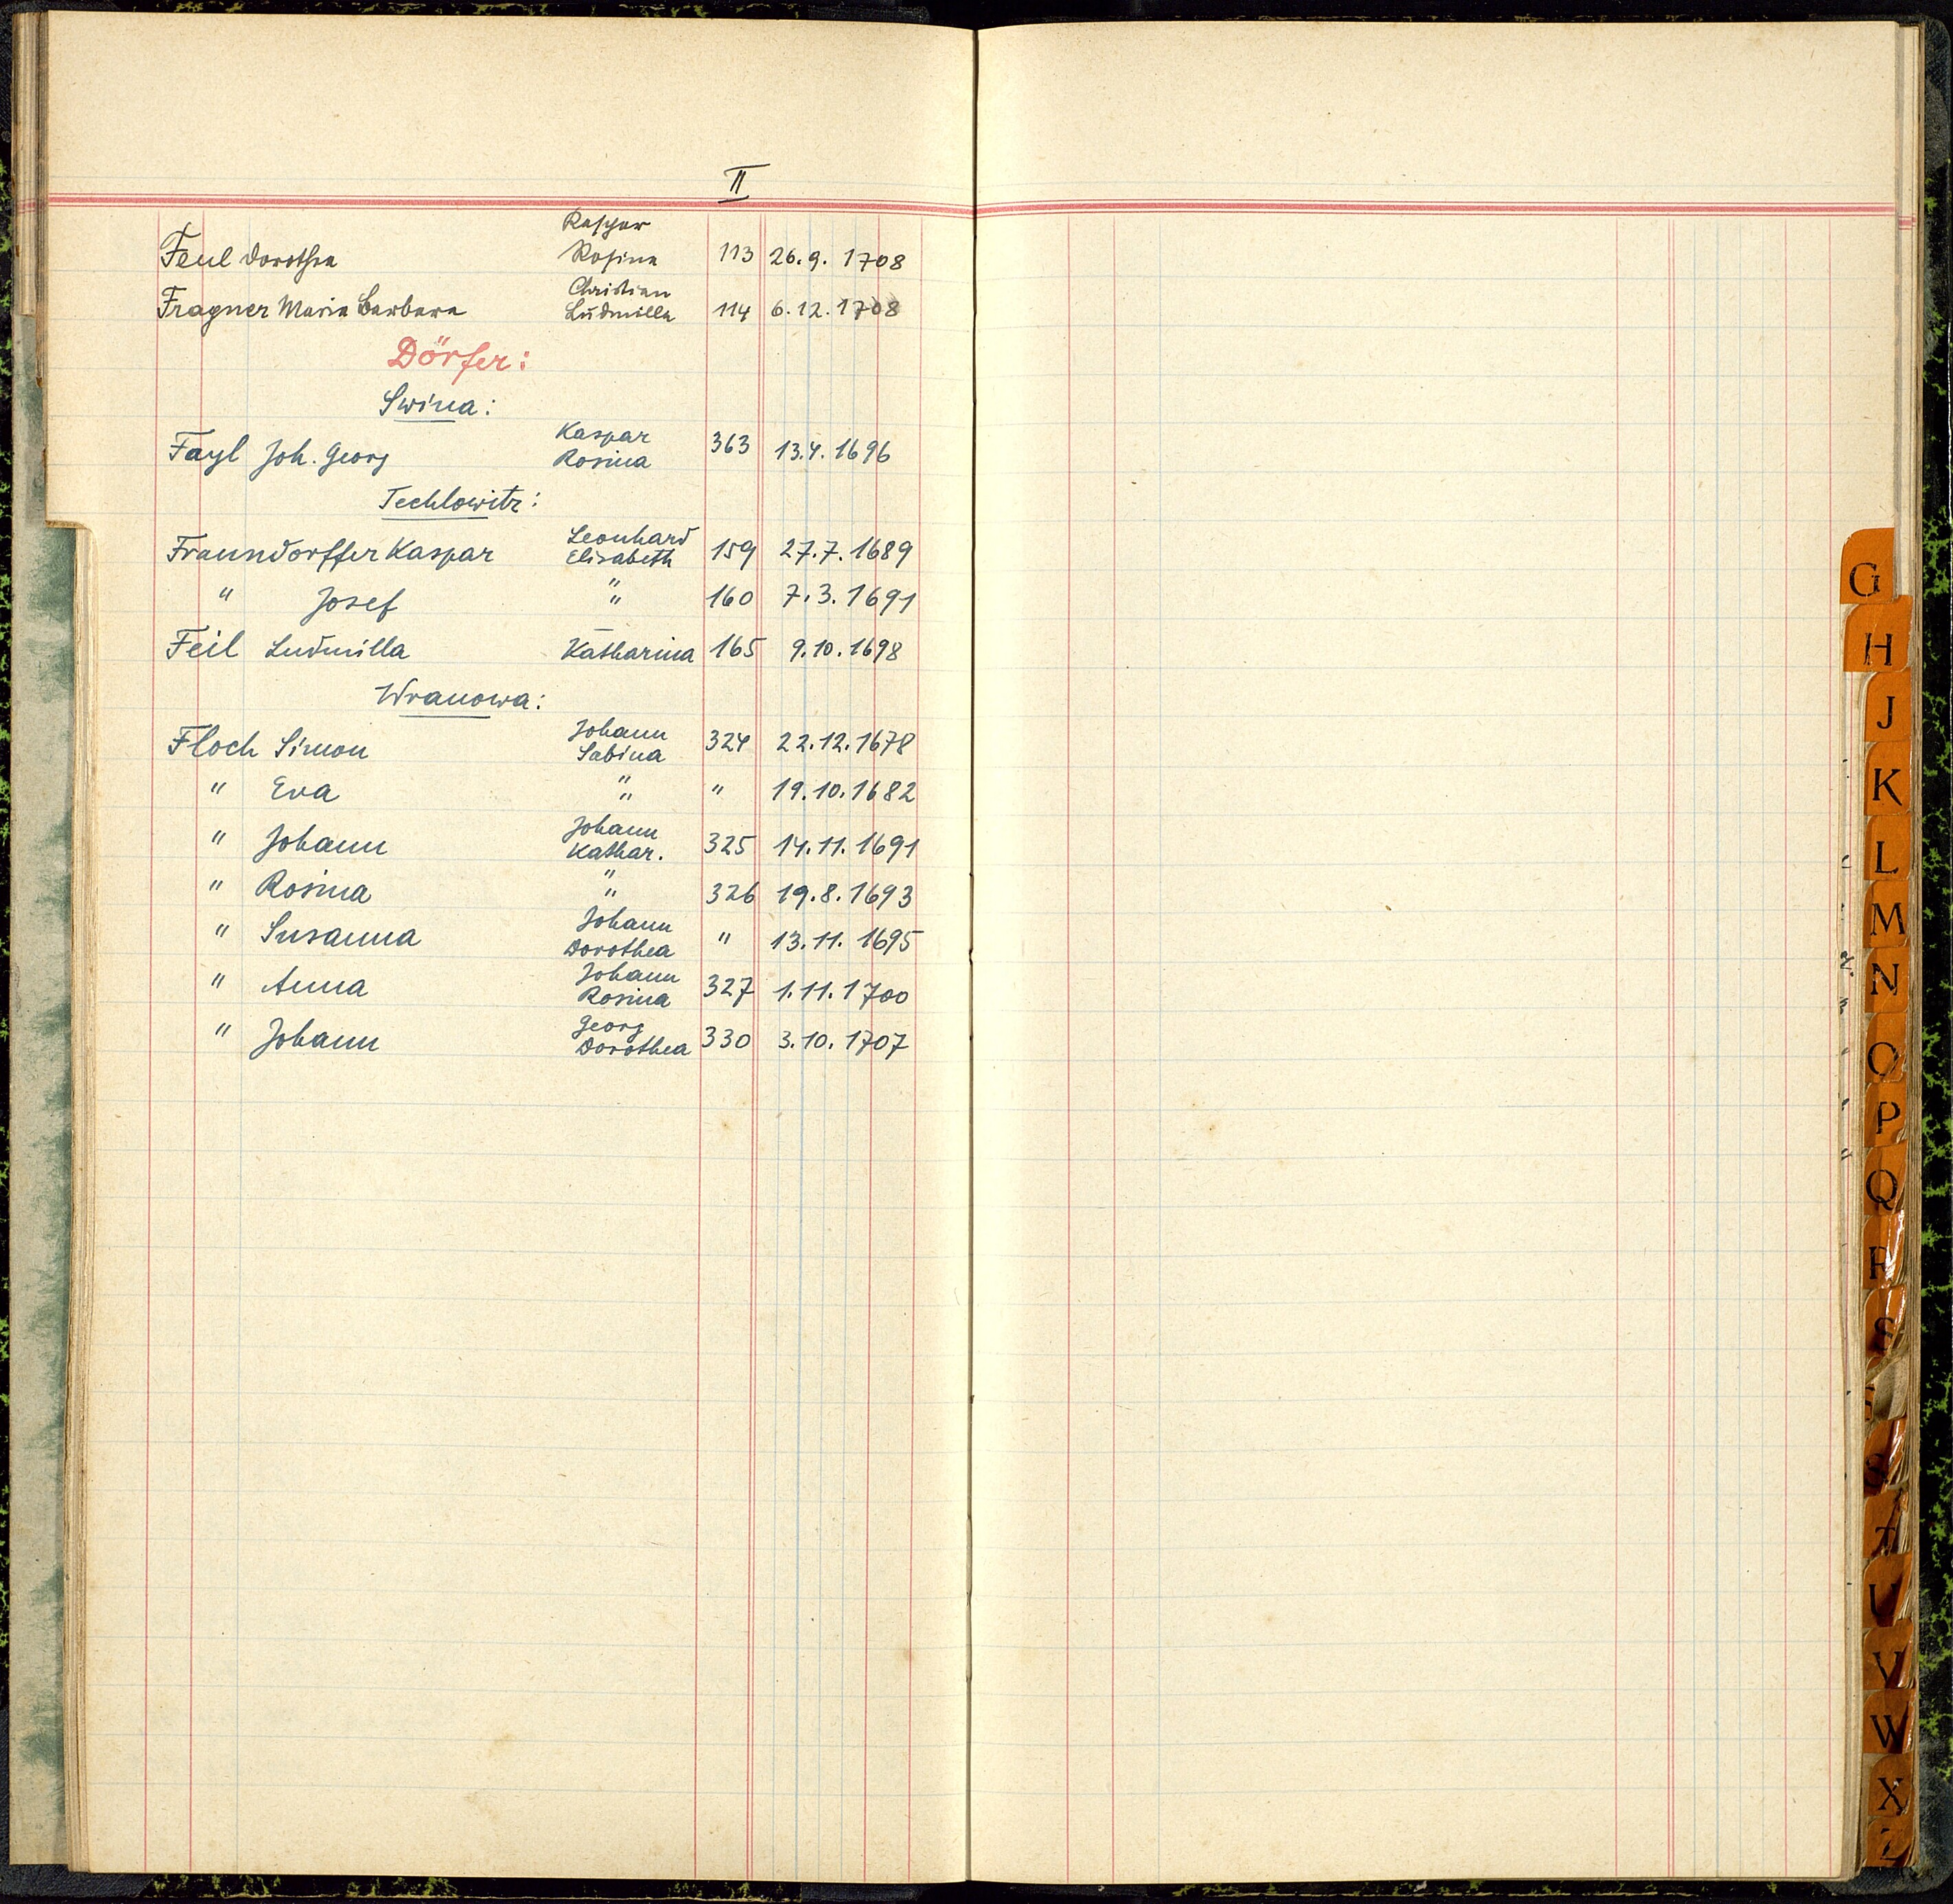 II
Kaspar
Feul Dorothea Rosina 113 26.9. 1708
Christian
Fragner Maria Barbara Ludmilla 114 6.12.1708
Dörfer:
Swina:
Kaspar
Fayl Joh. Georg Rosina 363 13.4.1696
Techlowitz:
Leonhard
Fraunndorffer Kaspar Elisabeth 159 27.7.1689
" Josef " " 160 7.3.1691
Feil Ludmilla – Katharina 165 9.10.1698
Wranowa:
Johann
Floch Simon Sabina 324 22.12.1678
" Eva " " " 19.10.1682
Johann
" Johann Kathar. 325 14.11.1691
" Rosina " " 326 19.8.1693
Johann
" Susanna Dorothea " 13.11.1695
Johann
" Anna Rosina 327 1.11.1700
Georg
" Johann Dorothea 330 3.10.1707
G
H
J
K
L
M
N
O
P
Q
R
S
T
U
V
W
X
Z